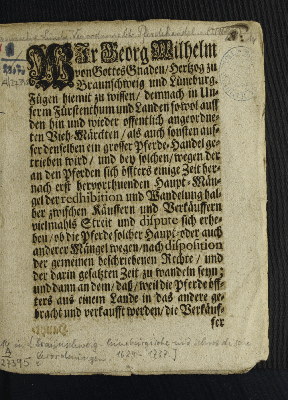 Wir Georg Wilhelm
von Gottes Gnaden / Hertzog zu
Braunschweig und Lüneburg.
Fügen hiemit zu wissen / demnach in Un-
serm Fürstenthum und Landen sowol auff
den hin und wieder offentlich angeordne-
ten Vieh-Märckten / als auch sonsten aus-
ser denselben ein grosser Pferde-Handel ge-
trieben wird / und bey solchen / wegen der
an den Pferden sich öffters einige Zeit her-
nach erst hervorthuenden Haupt-Män-
gel der redhibition und Wandelung hal-
ber zwischen Käuffern und Verkäuffern
vielmahls Streit und dispute sich erhe-
ben / ob die Pferde solcher Haupt- oder auch
anderer Mängel wegen / nach disposition
der gemeinen beschriebenen Rechte / und
der darin gesatzten Zeit zu wandeln seyn;
und dann an dem / daß / weil die Pferde öff-
ters aus einem Lande in das andere ge-
bracht und verkaufft werden / die Verkäuf-
fer